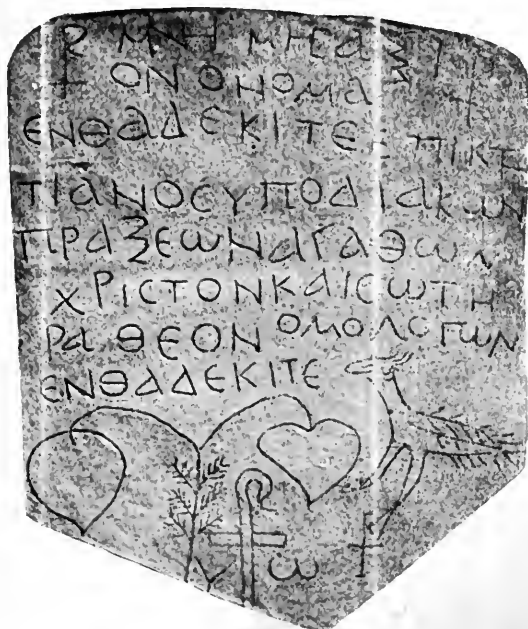 ΜΝΗΜΗϹ ΑΞΙ
ΟΝ ΟΝΟΜΑ
ΕΝΘΑΔΕ ΚΙΤΕ ΕΠΙΚΤ
ΤΙΑΝΟϹ ΥΠΟΔΙΑΚΩΝ
ΠΡΑΞΕΩΝ ΑΓΑΘΩΝ
ΧΡΙϹΤΟΝ ΚΑΙ ϹΩΤΗ
ΡΑ ΘΕΟΝ ΟΜΟΛΟΓΩΝ
ΕΝΘΑΔΕ ΚΙΤΕ
Ω